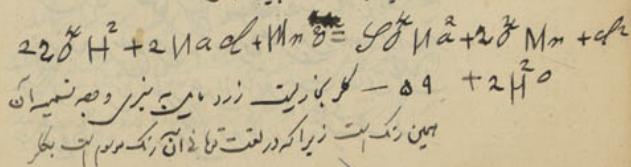 22ȣ̈H² + 2Nacl + Mnȣ̈ = Sȣ̈Na² + 2ȣ̈Mn + cl²
۵۹ — کلر بخاریست زرد مایل به سبزی وجه تسمیه آن + 2H²o
همین رنگ است زیرا که در لغت آن رنگ موسوم است بکلر